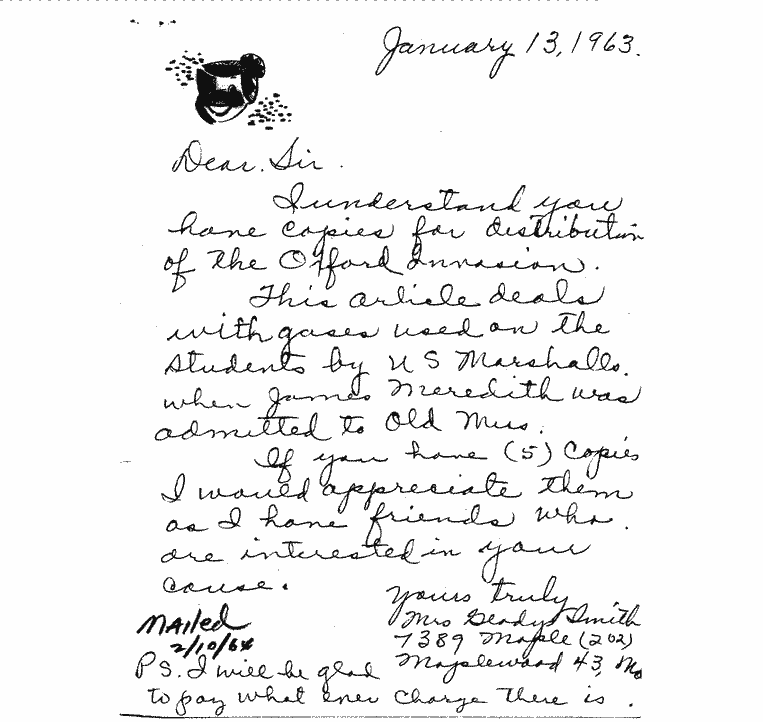 January 13, 1963.
Dear Sir.
I understand you
have copies for distribution
of the Oxford Invasion.
This article deals
with gases used on the
Students by US Marshalls.
when James Meredith was
admitted to Old Miss.
If you have (5) Copies
I would appreciate them
as I have friends who
are interested in your
cause.
Yours truly
Mrs Gladys Smith
7389 Maple (202)
Maplewood 43, Mo
MAILED
2/10/64
PS. I will be glad
to pay what ever charge there is.